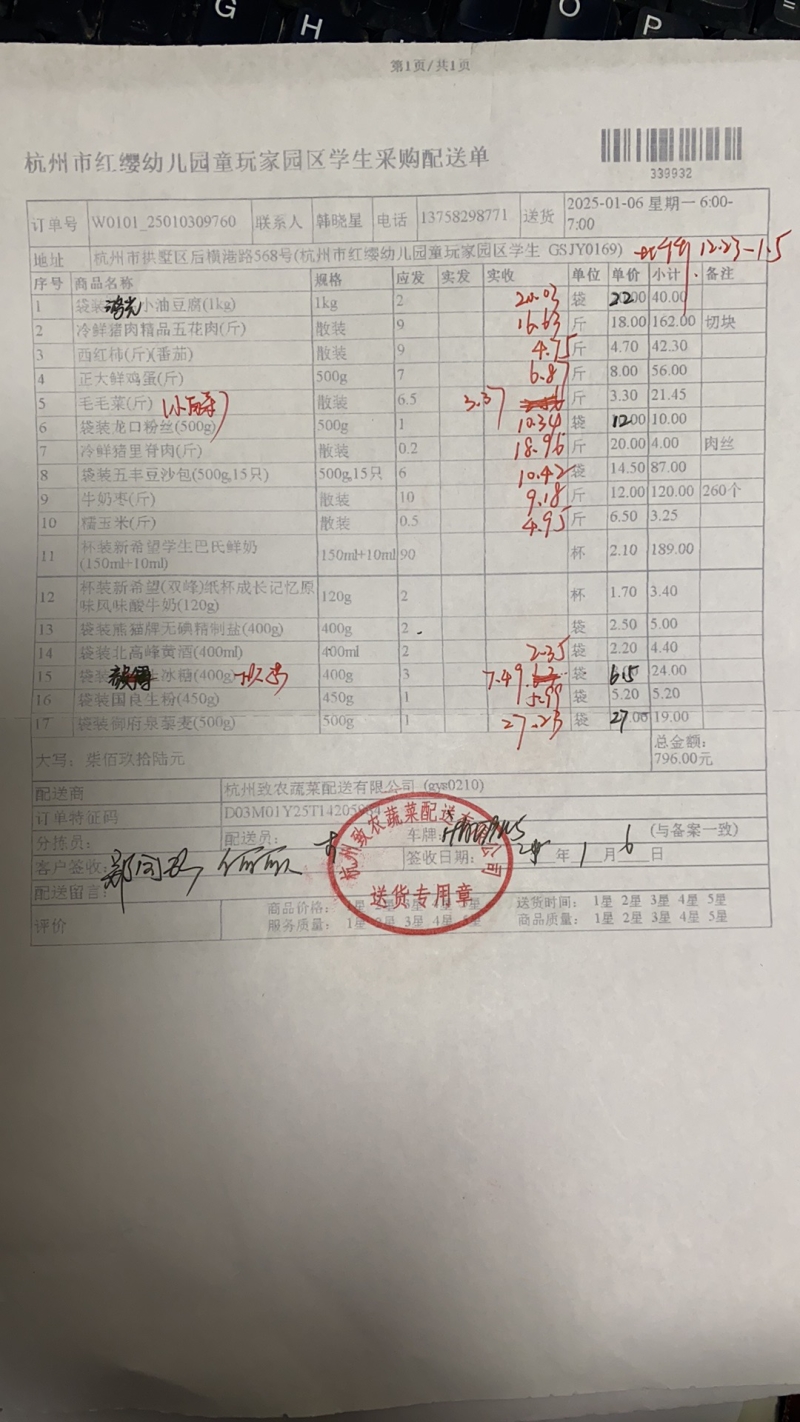 G H O P
第1页/共1页
杭州市红缨幼儿园童玩家园区学生采购配送单
339932
订单号 W0101_25010309760 联系人 韩晓星 电话 13758298771 送货 2025-01-06 星期一 6:00-7:00
地址 杭州市拱墅区后横港路568号(杭州市红缨幼儿园童玩家园区学生 GSJY0169) 12.23-1.5
序号 商品名称 规格 应发 实发 实收 单位 单价 小计 备注
1 袋装 小油豆腐(1kg) 1kg 2 20.03 袋 22.00 40.00
2 冷鲜猪肉精品五花肉(斤) 散装 9 16.63 斤 18.00 162.00 切块
3 西红柿(斤)(番茄) 散装 9 4.75 斤 4.70 42.30
4 正大鲜鸡蛋(斤) 500g 7 6.87 斤 8.00 56.00
5 毛毛菜(斤) 散装 6.5 3.37 斤 3.30 21.45
6 袋装龙口粉丝(500g) 500g 1 10.34 袋 12.00 10.00
7 冷鲜猪里脊肉(斤) 散装 0.2 18.96 斤 20.00 4.00 肉丝
8 袋装五丰豆沙包(500g,15只) 500g,15只 6 10.42 袋 14.50 87.00
9 牛奶枣(斤) 散装 10 9.18 斤 12.00 120.00 260个
10 糯玉米(斤) 散装 0.5 4.95 斤 6.50 3.25
11 杯装新希望学生巴氏鲜奶(150ml+10ml) 150ml+10ml 90 杯 2.10 189.00
12 杯装新希望(双峰)纸杯成长记忆原味风味酸牛奶(120g) 120g 2 杯 1.70 3.40
13 袋装熊猫牌无碘精制盐(400g) 400g 2 袋 2.50 5.00
14 袋装北高峰黄酒(400ml) 400ml 2 2.35 袋 2.20 4.40
15 袋装 冰糖(400g) 400g 3 7.49 袋 24.00
16 袋装国良生粉(450g) 450g 1 5.99 袋 5.20 5.20
17 袋装御府泉藜麦(500g) 500g 1 27.23 袋 27.00 19.00
大写：柒佰玖拾陆元 总金额：796.00元
配送商 杭州致农蔬菜配送有限公司 (gys0210)
订单特征码 D03M01Y25T14205
分拣员： 配送员： 车牌 (与备案一致)
客户签收： 签收日期： 年 1 月 6 日
配送留言：
评价 商品价格： 1星 2星 3星 4星 5星 送货时间： 1星 2星 3星 4星 5星
服务质量： 1星 2星 3星 4星 5星 商品质量： 1星 2星 3星 4星 5星
杭州致农蔬菜配送有限公司
送货专用章